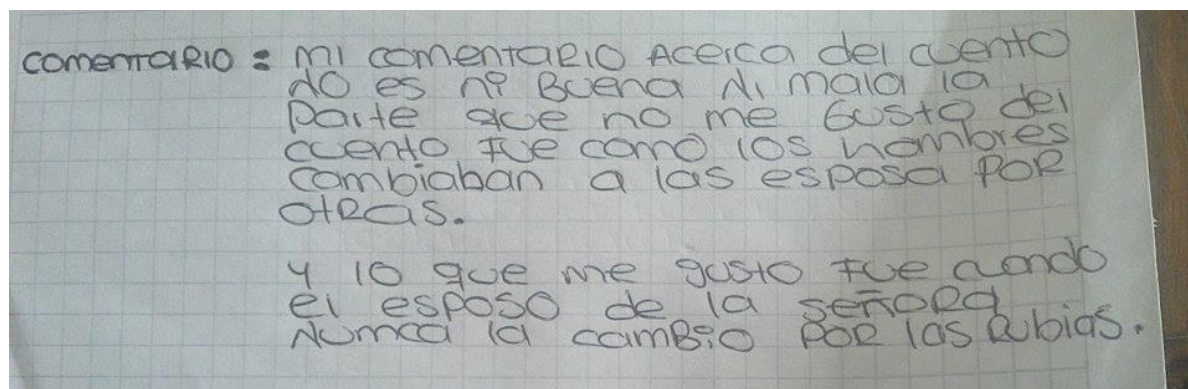 comentaRIO : mi comentaRIO Acerca del cuento
NO es ni Buena Ni mala la
Parte que no me Gusto del
cuento fue como los hombres
cambiaban a las esposa POR
otRas.
y lo que me gusto fue cuando
el esposo de la señora
Numca la camBio POR las Rubias.